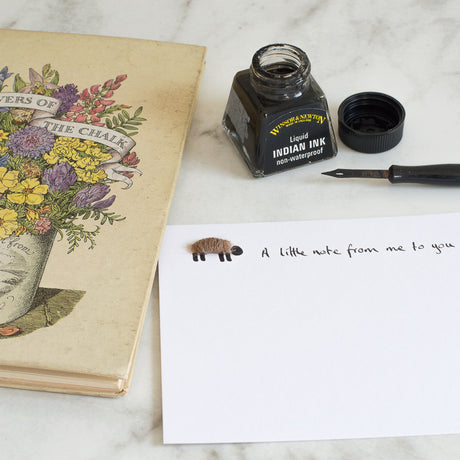 VERS OF
THE CHALK
WINSOR & NEWTON
Liquid
INDIAN INK
non-waterproof
A little note from me to you